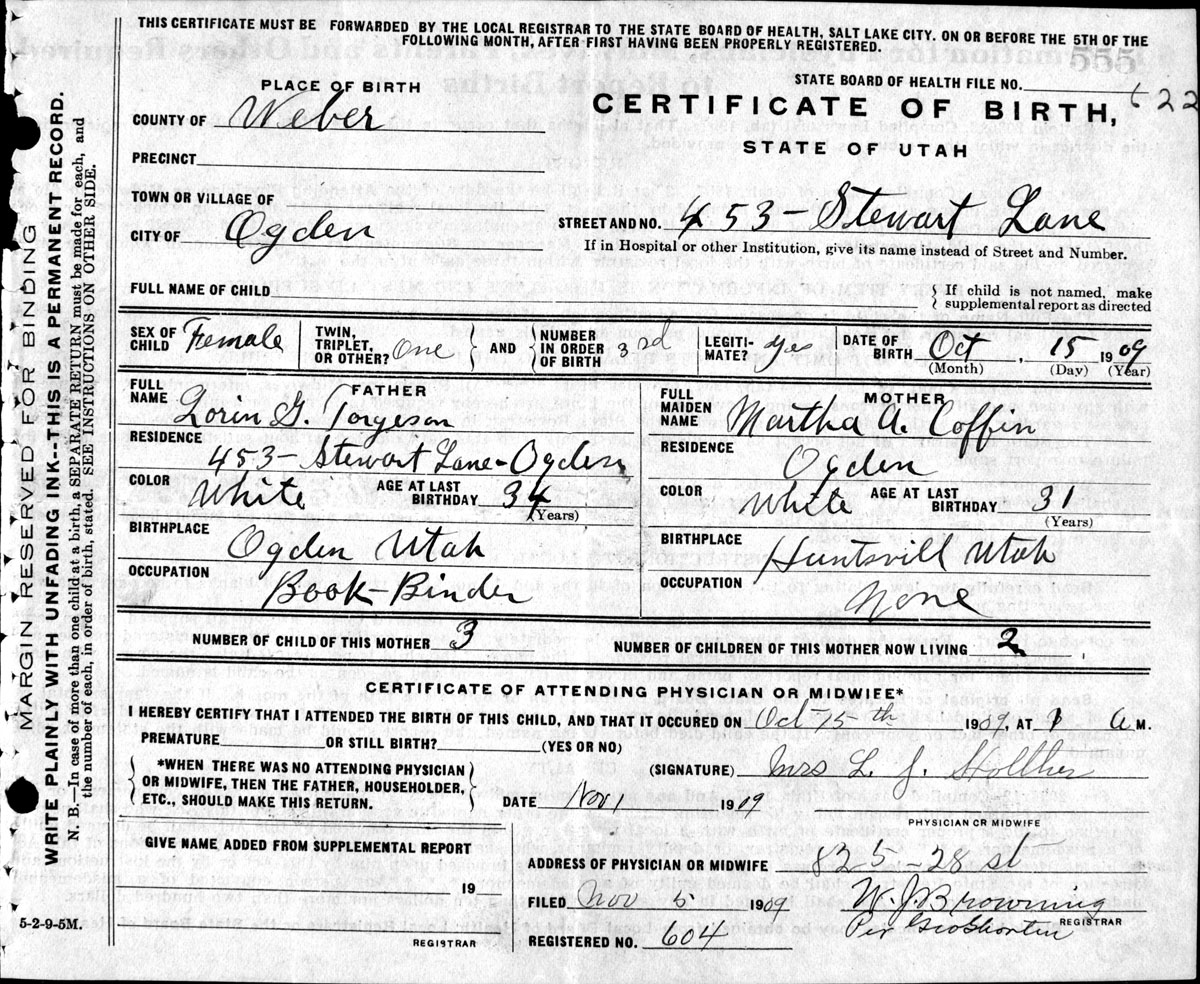 THIS CERTIFICATE MUST BE FORWARDED BY THE LOCAL REGISTRAR TO THE STATE BOARD OF HEALTH, SALT LAKE CITY, ON OR BEFORE THE 5TH OF THE
FOLLOWING MONTH, AFTER FIRST HAVING BEEN PROPERLY REGISTERED.
555
STATE BOARD OF HEALTH FILE NO. 522
PLACE OF BIRTH
CERTIFICATE OF BIRTH,
STATE OF UTAH
COUNTY OF Weber
PRECINCT
TOWN OR VILLAGE OF
CITY OF Ogden
STREET AND NO. 453 - Stewart Lane
If in Hospital or other Institution, give its name instead of Street and Number.
FULL NAME OF CHILD
If child is not named, make
supplemental report as directed
SEX OF CHILD Female
TWIN, TRIPLET, OR OTHER? One
AND NUMBER IN ORDER OF BIRTH 3rd
LEGITIMATE? yes
DATE OF BIRTH Oct 15 1909
(Month) (Day) (Year)
FATHER
FULL NAME Lorin G. Torgeson
RESIDENCE
453 - Stewart Lane - Ogden
COLOR White AGE AT LAST BIRTHDAY 34
(Years)
BIRTHPLACE
Ogden Utah
OCCUPATION
Book-Binder
MOTHER
FULL MAIDEN NAME Martha A. Coffin
RESIDENCE
Ogden
COLOR White AGE AT LAST BIRTHDAY 31
(Years)
BIRTHPLACE
Huntsvill Utah
OCCUPATION
None
NUMBER OF CHILD OF THIS MOTHER 3
NUMBER OF CHILDREN OF THIS MOTHER NOW LIVING 2
CERTIFICATE OF ATTENDING PHYSICIAN OR MIDWIFE*
I HEREBY CERTIFY THAT I ATTENDED THE BIRTH OF THIS CHILD, AND THAT IT OCCURED ON Oct 15th 1909, AT A M.
PREMATURE OR STILL BIRTH? (YES OR NO)
*WHEN THERE WAS NO ATTENDING PHYSICIAN
OR MIDWIFE, THEN THE FATHER, HOUSEHOLDER,
ETC., SHOULD MAKE THIS RETURN.
(SIGNATURE) Mrs L. J.
DATE Nov 1 1909
PHYSICIAN OR MIDWIFE
GIVE NAME ADDED FROM SUPPLEMENTAL REPORT
19
REGISTRAR
ADDRESS OF PHYSICIAN OR MIDWIFE 825 - 28 st
FILED Nov 5 1909
W. J. Browning
REGISTRAR
Per
REGISTERED NO. 604
5-2-9-5M.
MARGIN RESERVED FOR BINDING
WRITE PLAINLY WITH UNFADING INK--THIS IS A PERMANENT RECORD.
N. B.—In case of more than one child at a birth, a SEPARATE RETURN must be made for each, and
the number of each, in order of birth, stated. SEE INSTRUCTIONS ON OTHER SIDE.